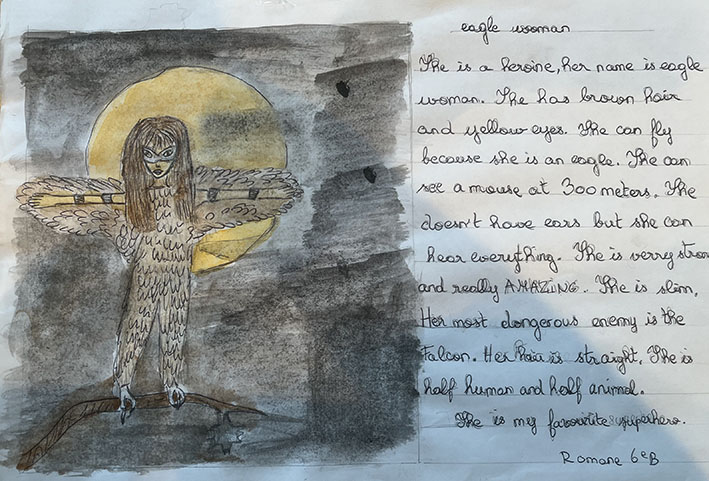 eagle woman
She is a heroine, her name is eagle
woman. She has brown hair
and yellow eyes. She can fly
because she is an eagle. She can
see a mouse at 300 meters. She
doesn't have ears but she can
hear everyfhing. She is verry strong
and really AMAZING. She is slim,
Her most dangerous enemy is the
Falcon. Her hair is straight. She is
half human and half animal.
She is my favourite superhero.
Romane 6eB